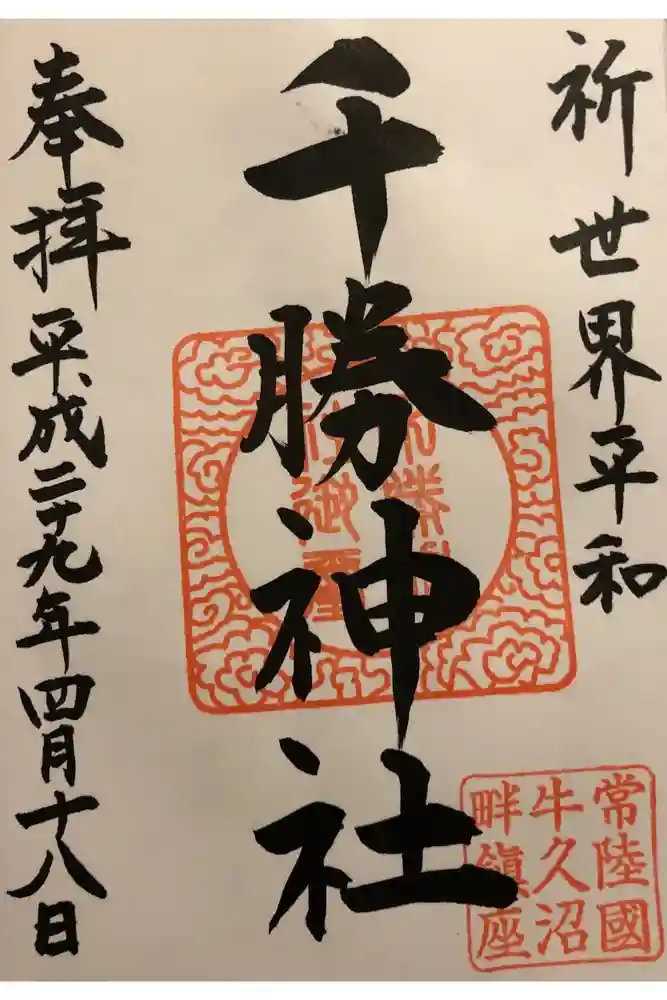 祈世界平和
千勝神社
奉拝平成二十九年四月十八日
常陸國
牛久沼
畔鎮座